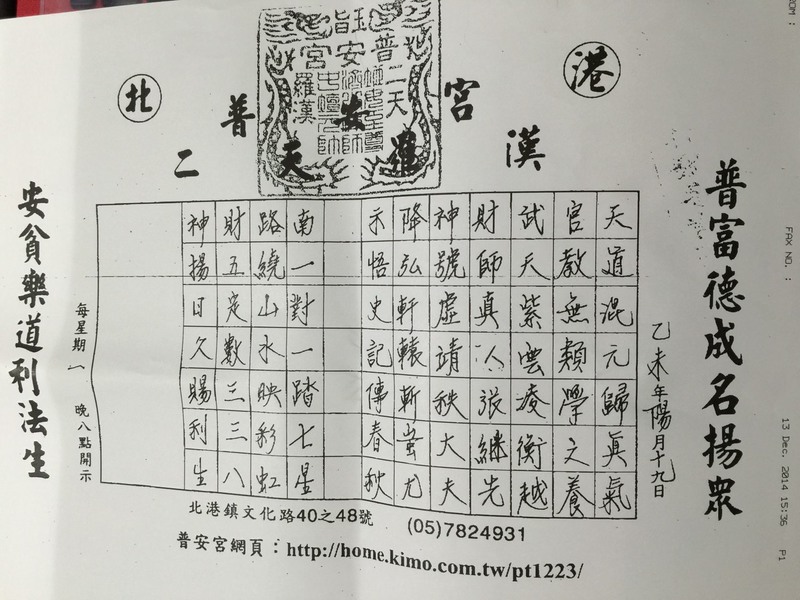 北
港
普安宮
二天羅漢
普富德成名揚眾
乙未年陽月十九日
天道混元歸真氣
宮教無類學文養
武天紫雲凌衡越
財師真人張繼先
神號虛靖秩大夫
降弘軒轅斬蚩尤
示悟史記傳春秋
南一對一踏七星
路繞山水映彩虹
財五定數三三八
神揚日久賜利生
每星期一 晚八點開示
安貧樂道利法生
北港鎮文化路40之48號
(05)7824931
普安宮網頁：http://home.kimo.com.tw/pt1223/
FAX NO. :
13 Dec. 2014 15:36 P1